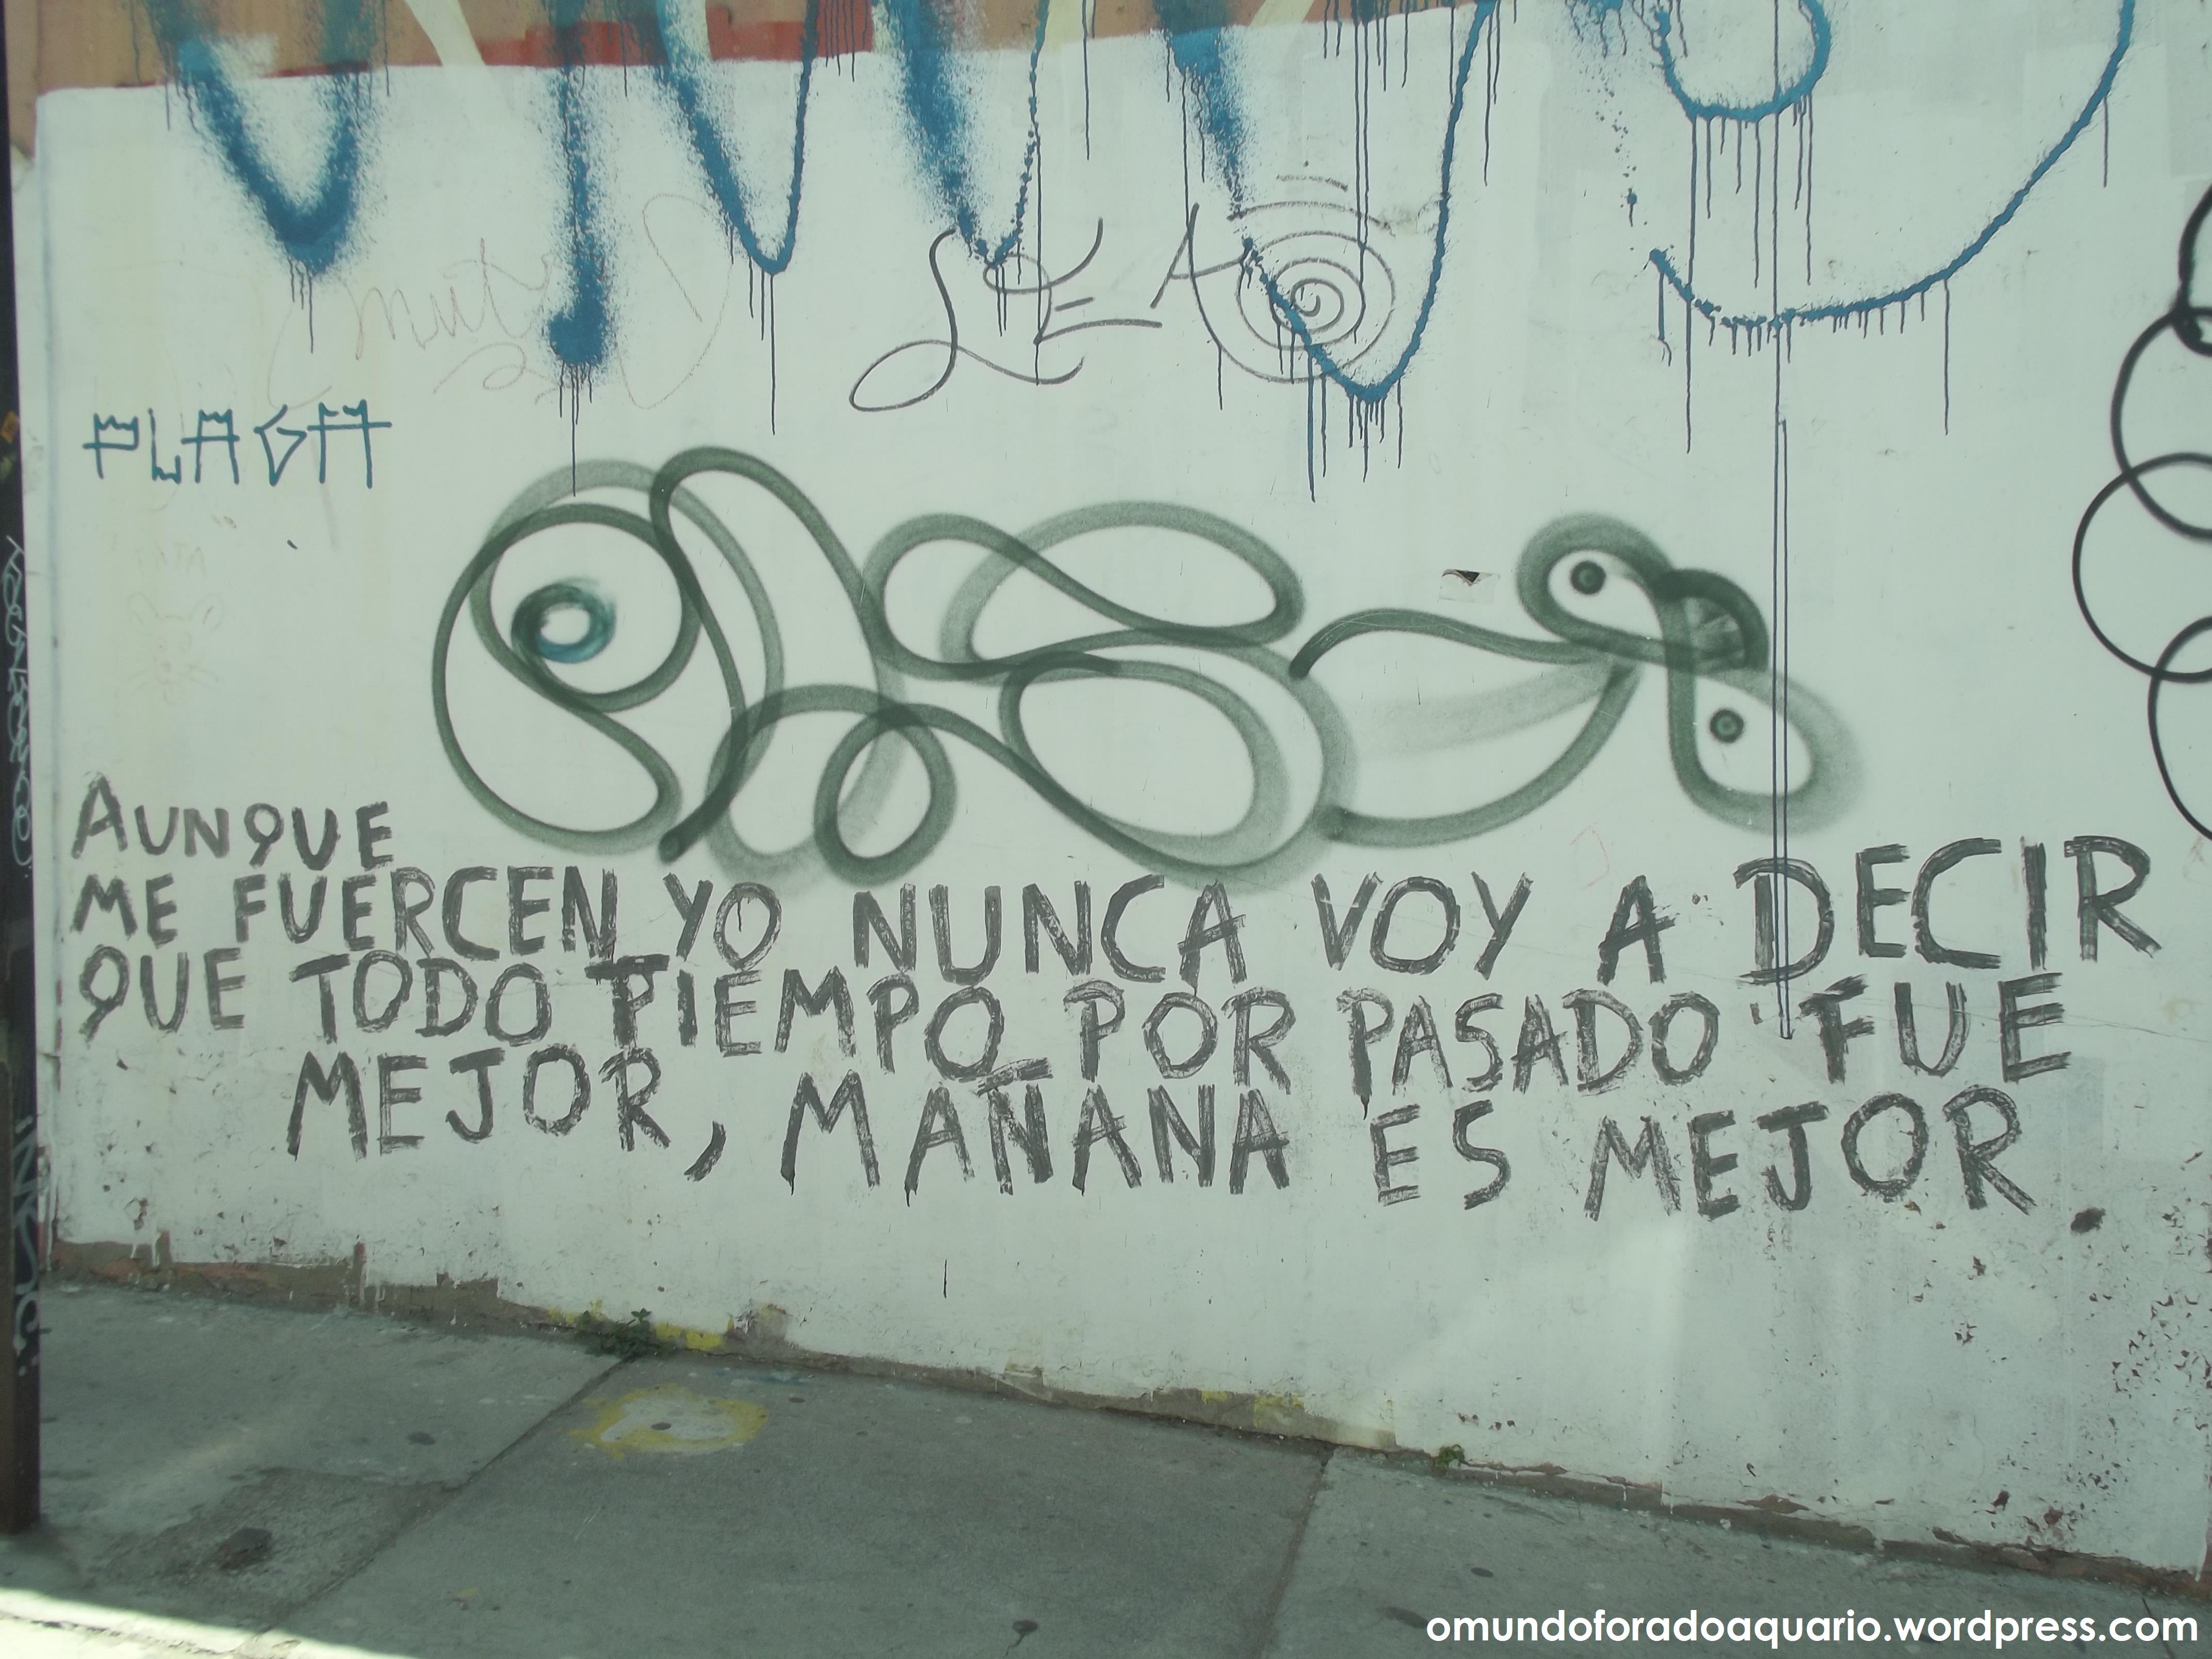 LEA
PLAGA
AUNQUE
ME FUERCEN YO NUNCA VOY A DECIR
QUE TODO TIEMPO POR PASADO FUE
MEJOR, MAÑANA ES MEJOR
omundoforadoaquario.wordpress.com